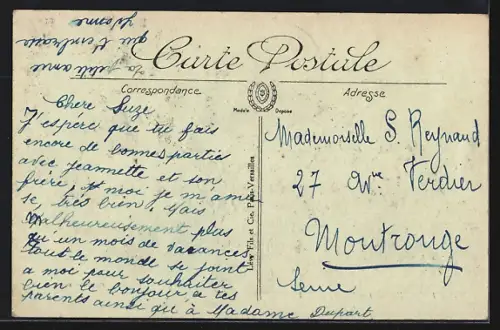 Carte Postale
Correspondance
Adresse
Modèle Déposé
Lévy Fils et Cie, Paris-Versailles
Chère Suze
J'espère que tu fais
encore de bonnes parties
avec Jeannette et son
frère, et moi je m'amu
se, très bien. Mais
malheureusement plus
qu'un mois de vacances
tout le monde se joint
a moi pour souhaiter
bien le bonjour a tes
parents ainsi qu'à Madame Dupart
ta petite amie
qui t'embrasse
Yvonne
Mademoiselle S. Reynaud
27 Ave Verdier
Montrouge
Seine